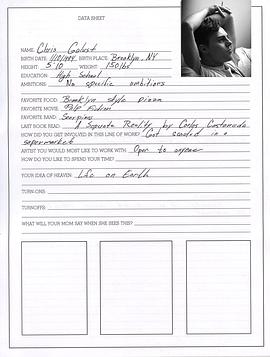 DATA SHEET
NAME: Chris
BIRTH PLACE: Brooklyn, NY
HEIGHT: 5'10 WEIGHT: 150lbs
EDUCATION: High School
AMBITIONS: No specific ambitions
FAVORITE FOOD: Brooklyn style pizza
FAVORITE MOVIE: Pulp Fiction
FAVORITE BAND: Scorpions
LAST BOOK READ: A Separate Reality by Carlos Castaneda
HOW DID YOU GET INVOLVED IN THIS LINE OF WORK? Got scouted in a
supermarket
ARTIST YOU WOULD MOST LIKE TO WORK WITH: Open to anyone
HOW DO YOU LIKE TO SPEND YOUR TIME?
YOUR IDEA OF HEAVEN: Life on Earth
TURN-ONS:
TURNOFFS:
WHAT WILL YOUR MOM SAY WHEN SHE SEES THIS?